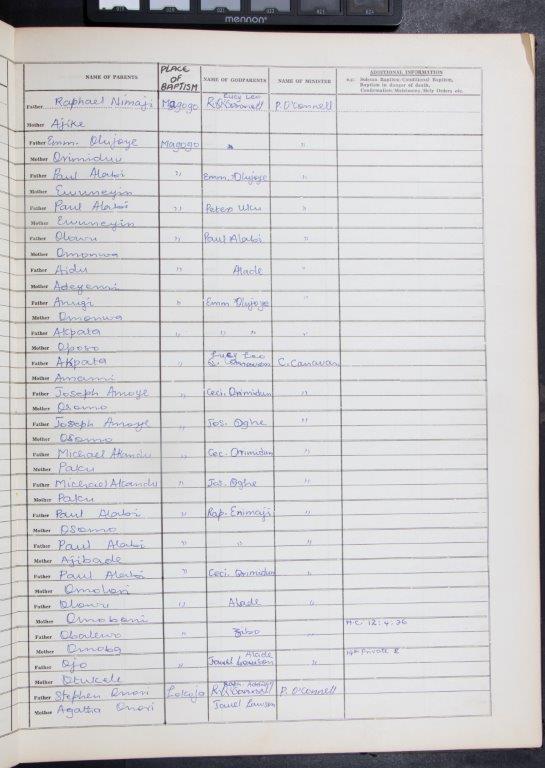 mennon
NAME OF PARENTS
PLACE OF BAPTISM
NAME OF GODPARENTS
NAME OF MINISTER
ADDITIONAL INFORMATION
e.g. Solemn Baptism, Conditional Baptism,
Baptism in danger of death,
Confirmation, Matrimony, Holy Orders etc.
Lucy Leo
Father Raphael Nimaji Magogo P. O'Connell
Mother Ajike
Father Emm. Olujoye Magogo " "
Mother Orimidun
Father Paul Alabi " Emm. Olujoye "
Mother Ewuneyin
Father Paul Alabi " Peter Uku "
Mother Ewuneyin
Father Olowu " Paul Alabi "
Mother Omonwa
Father Aidu " Alade "
Mother Adeyemi
Father Anugi " Emm Olujoye "
Mother Omonwa
Father Akpata " " " "
Mother Oposo
Lucy Leo
Father Akpata " C. Canavan
Mother Amami
Father Joseph Amoye " Ceci. Orimidun "
Mother Osomo
Father Joseph Amoye " Jos. Oghe "
Mother Osomo
Father Michael Akandu " Cec. Orimidun "
Mother Paku
Father Michael Akandu " Jos. Oghe "
Mother Paku
Father Paul Alabi " Rap. Enimaji "
Mother Osomo
Father Paul Alabi " " "
Mother Ajibade
Father Paul Alabi " Ceci. Orimidun "
Mother Omolori
Father Olowu " Alade "
Mother Omoboni H.C. 12:4:36
Father Obalewo " "
Mother Omoba
Alade 14th Private
Father Ojo " Lawson "
Mother Otukele
Father Stephen Onori Lokoja P. O'Connell
Mother Agatha Onori Lawson